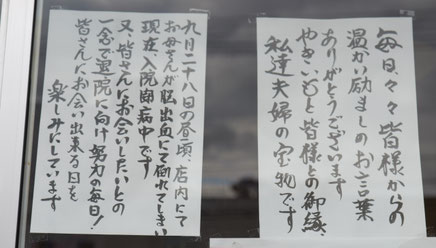 毎日、々皆様からの
温かい励ましのお言葉
ありがとうございます
やきいもと皆様との御縁、
私達夫婦の宝物です
九月二十八日の昼頃、店内にて
お母さんが脳出血にて倒れてしまい
現在入院闘病中です
又、皆さんにお会いしたいとの
一念で退院に向け努力の毎日!
皆さんにお会い出来る日を
楽しみにしています